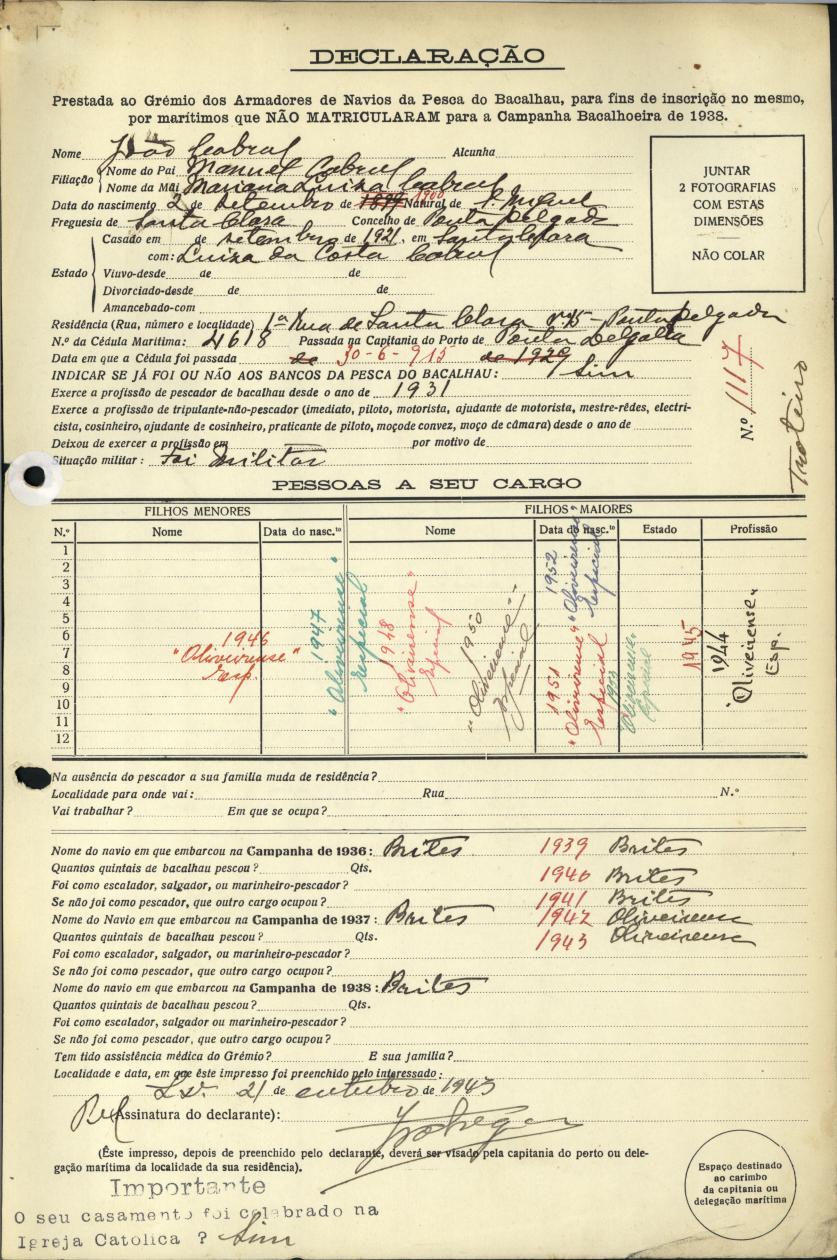 DECLARAÇÃO
Prestada ao Grémio dos Armadores de Navios da Pesca do Bacalhau, para fins de inscrição no mesmo,
por marítimos que NÃO MATRICULARAM para a Campanha Bacalhoeira de 1938.
Nome João Cabral Alcunha
Filiação Nome do Pai Manuel Cabral
Nome da Mãi Mariana Luiza Cabral
Data do nascimento 2 de setembro de 1900 Natural de S. Miguel
Freguesia de Santa Clara Concelho de Ponta Delgada
Estado
Casado em de setembro de 1921, em Santa Clara
com: Luiza da Costa Cabral
Viuvo-desde de de
Divorciado-desde de de
Amancebado-com
JUNTAR
2 FOTOGRAFIAS
COM ESTAS
DIMENSÕES
NÃO COLAR
Residência (Rua, número e localidade) 1ª Rua de Santa Clara nº 75 - Ponta Delgada
N.º da Cédula Marítima: 4618 Passada na Capitania do Porto de Ponta Delgada
Data em que a Cédula foi passada de 30-6-915 de 1929
INDICAR SE JÁ FOI OU NÃO AOS BANCOS DA PESCA DO BACALHAU: Sim
Exerce a profissão de pescador de bacalhau desde o ano de 1931
Exerce a profissão de tripulante-não-pescador (imediato, piloto, motorista, ajudante de motorista, mestre-rêdes, electri-
cista, cosinheiro, ajudante de cosinheiro, praticante de piloto, moço de convez, moço de câmara) desde o ano de
Deixou de exercer a profissão em por motivo de
Situação militar: Foi militar
N.º 1117
PESSOAS A SEU CARGO
FILHOS MENORES FILHOS MAIORES
N.º Nome Data do nasc.to Nome Data do nasc.to Estado Profissão
1
2
3
4
5
6
7
8
9
10
11
12
1946
"Oliveirense"
Esp.
1947
"Oliveirense"
Especial
1948
"Oliveirense"
Especial
1950
"Oliveirense"
Especial
1952
"Oliveirense"
Especial
1951
"Oliveirense"
Especial
Oliveirense
Especial
1945
1944
"Oliveirense"
Esp.
Na ausência do pescador a sua família muda de residência?
Localidade para onde vai: Rua N.º
Vai trabalhar? Em que se ocupa?
Nome do navio em que embarcou na Campanha de 1936: Brites 1939 Brites
Quantos quintais de bacalhau pescou? Qts.
Foi como escalador, salgador, ou marinheiro-pescador? 1940 Brites
Se não foi como pescador, que outro cargo ocupou? 1941 Brites
Nome do Navio em que embarcou na Campanha de 1937: Brites 1942 Oliveirense
Quantos quintais de bacalhau pescou? Qts. 1943 Oliveirense
Foi como escalador, salgador, ou marinheiro-pescador?
Se não foi como pescador, que outro cargo ocupou?
Nome do navio em que embarcou na Campanha de 1938: Brites
Quantos quintais de bacalhau pescou? Qts.
Foi como escalador, salgador ou marinheiro-pescador?
Se não foi como pescador, que outro cargo ocupou?
Tem tido assistência médica do Grémio? E sua família?
Localidade e data, em que êste impresso foi preenchido pelo interessado:
21 de outubro de 1943
Assinatura do declarante):
(Êste impresso, depois de preenchido pelo declarante, deverá ser visado pela capitania do porto ou dele-
gação marítima da localidade da sua residência).
Espaço destinado
ao carimbo
da capitania ou
delegação marítima
Importante
O seu casamento foi celebrado na
Igreja Catolica ? Sim